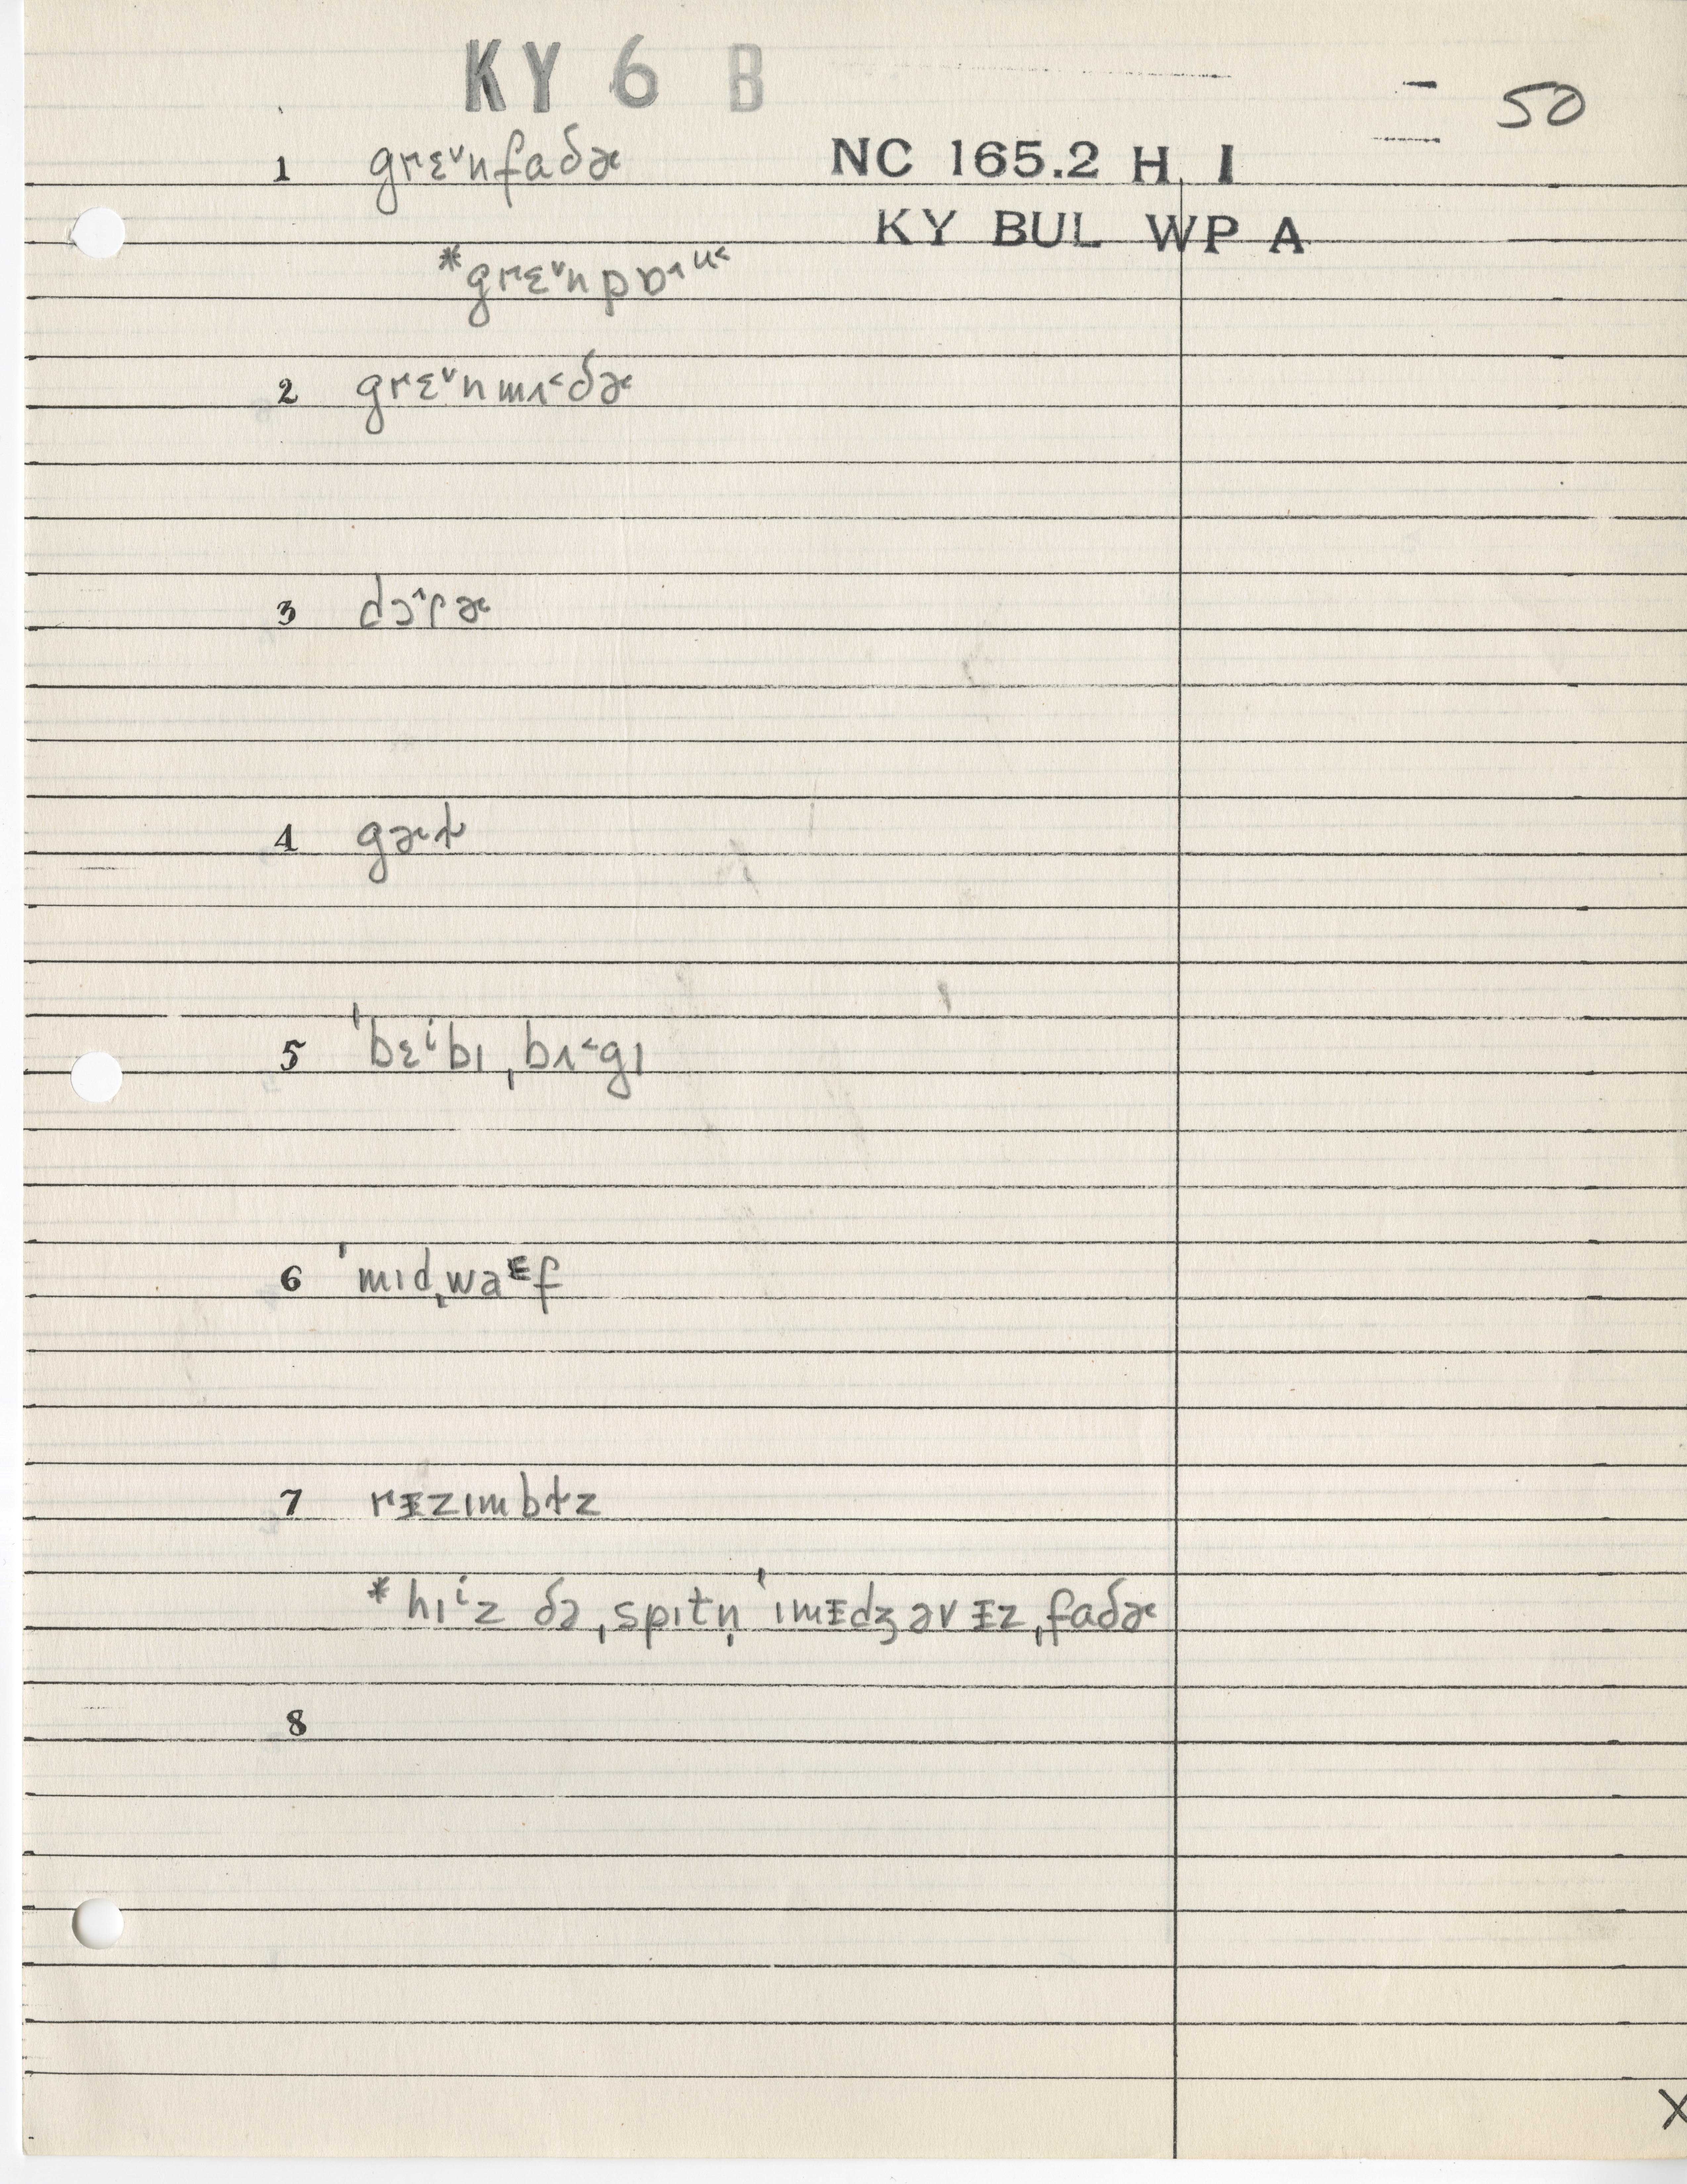 KY 6 B
50
NC 165.2 H I
KY BUL WP A
1 grɛ˅nfaðɚ
*grɛ˅npɒ˄ᵘ˂
2 grɛ˅nmʌ˂ðɚ
3 dɔ˄ɾɚ
4 gɚɫ
5 ˈbɛⁱbɪˌbʌ˂gɪ
6 ˈmɪdˌwaᴱf
7 rᵻzɪmbɫz
*hɪⁱz ðəˌspɪtn̩ ˈɪmᵻdʒ əv ᵻzˌfaðɚ
8
X